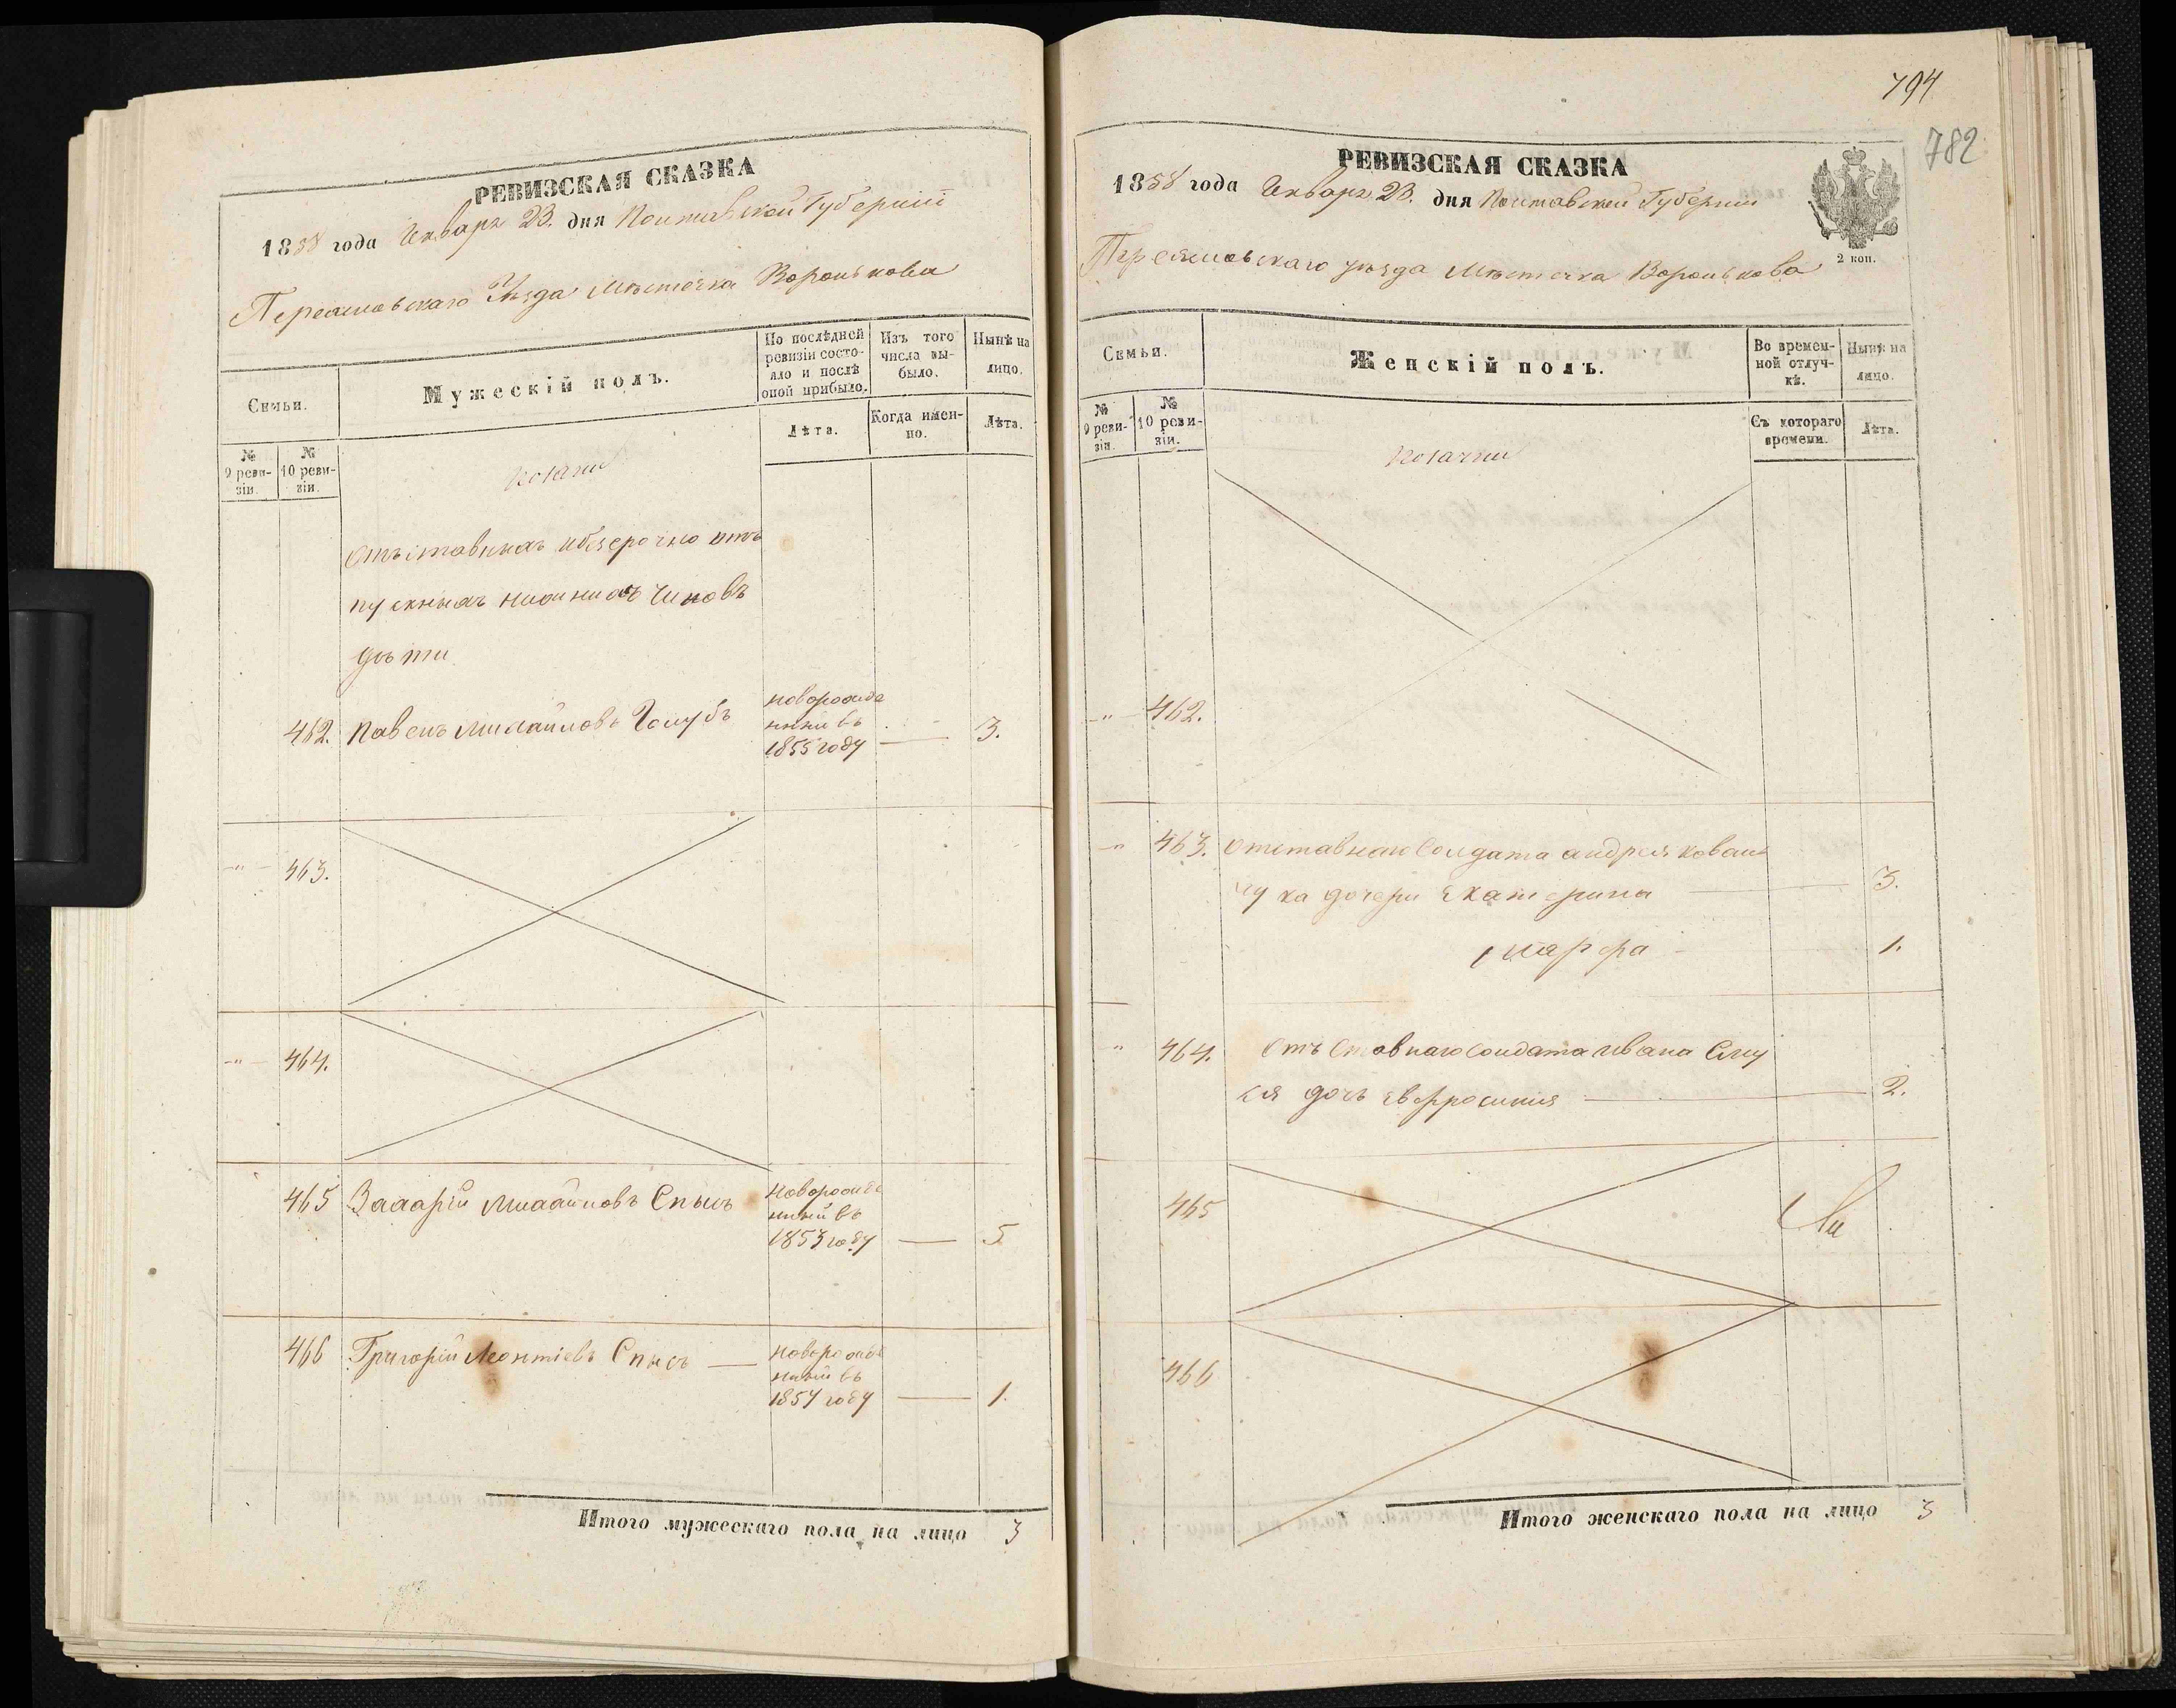 РЕВИЗСКАЯ СКАЗКА
1858 года Января 23. дня Полтавской Губерніи
Переяславскаго Уѣзда Мѣстечка Воронькова
Семьи.
Мужескій полъ.
По послѣдней ревизіи состояло и послѣ оной прибыло.
Изъ того числа выбыло.
Нынѣ на лицо.
№ 9 ревизіи.
№ 10 ревизіи.
Лѣта.
Когда именно.
Лѣта.
Козаки
Отъставныхъ ибезсрочно отъ
пускныхъ нижнихъ чиновъ
дѣти
462. Павелъ Михайловъ Голубъ
новорожде
нный въ
1855 году — 3.
-"- 463.
-"- 464.
465 Захарій Михайловъ Спысъ
новорожде
нный въ
1853 году — 5
466 Григорій Леонтіевъ Спысъ —
новорожде
нный въ
1857 году — 1.
Итого мужескаго пола на лицо 3
794
782
РЕВИЗСКАЯ СКАЗКА
1858 года Января 23. дня Полтавской Губерніи
2 коп.
Переяславскаго уѣзда Мѣстечка Воронькова
Семьи.
Женскій полъ.
Во временной отлучкѣ.
Нынѣ на лицо.
№ 9 ревизіи.
№ 10 ревизіи.
Съ котораго времени.
Лѣта.
Козачки
-"- 462.
-"- 463. Отставнаго Солдата андрея коваль
чука дочери Екатерина — 3.
Марфа - 1.
" 464. Отъставнаго Солдата ивана
дочь Евфросинія — 2.
465
466
Итого женскаго пола на лицо 3